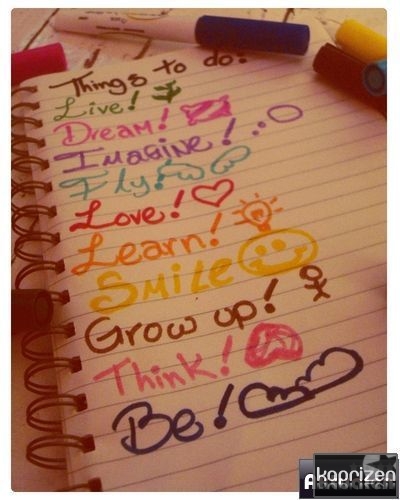 Things to do:
Live!
Dream!
Imagine!
Fly!
Love!
Learn!
SMiLE
Grow up!
Think!
Be!
kaprizen